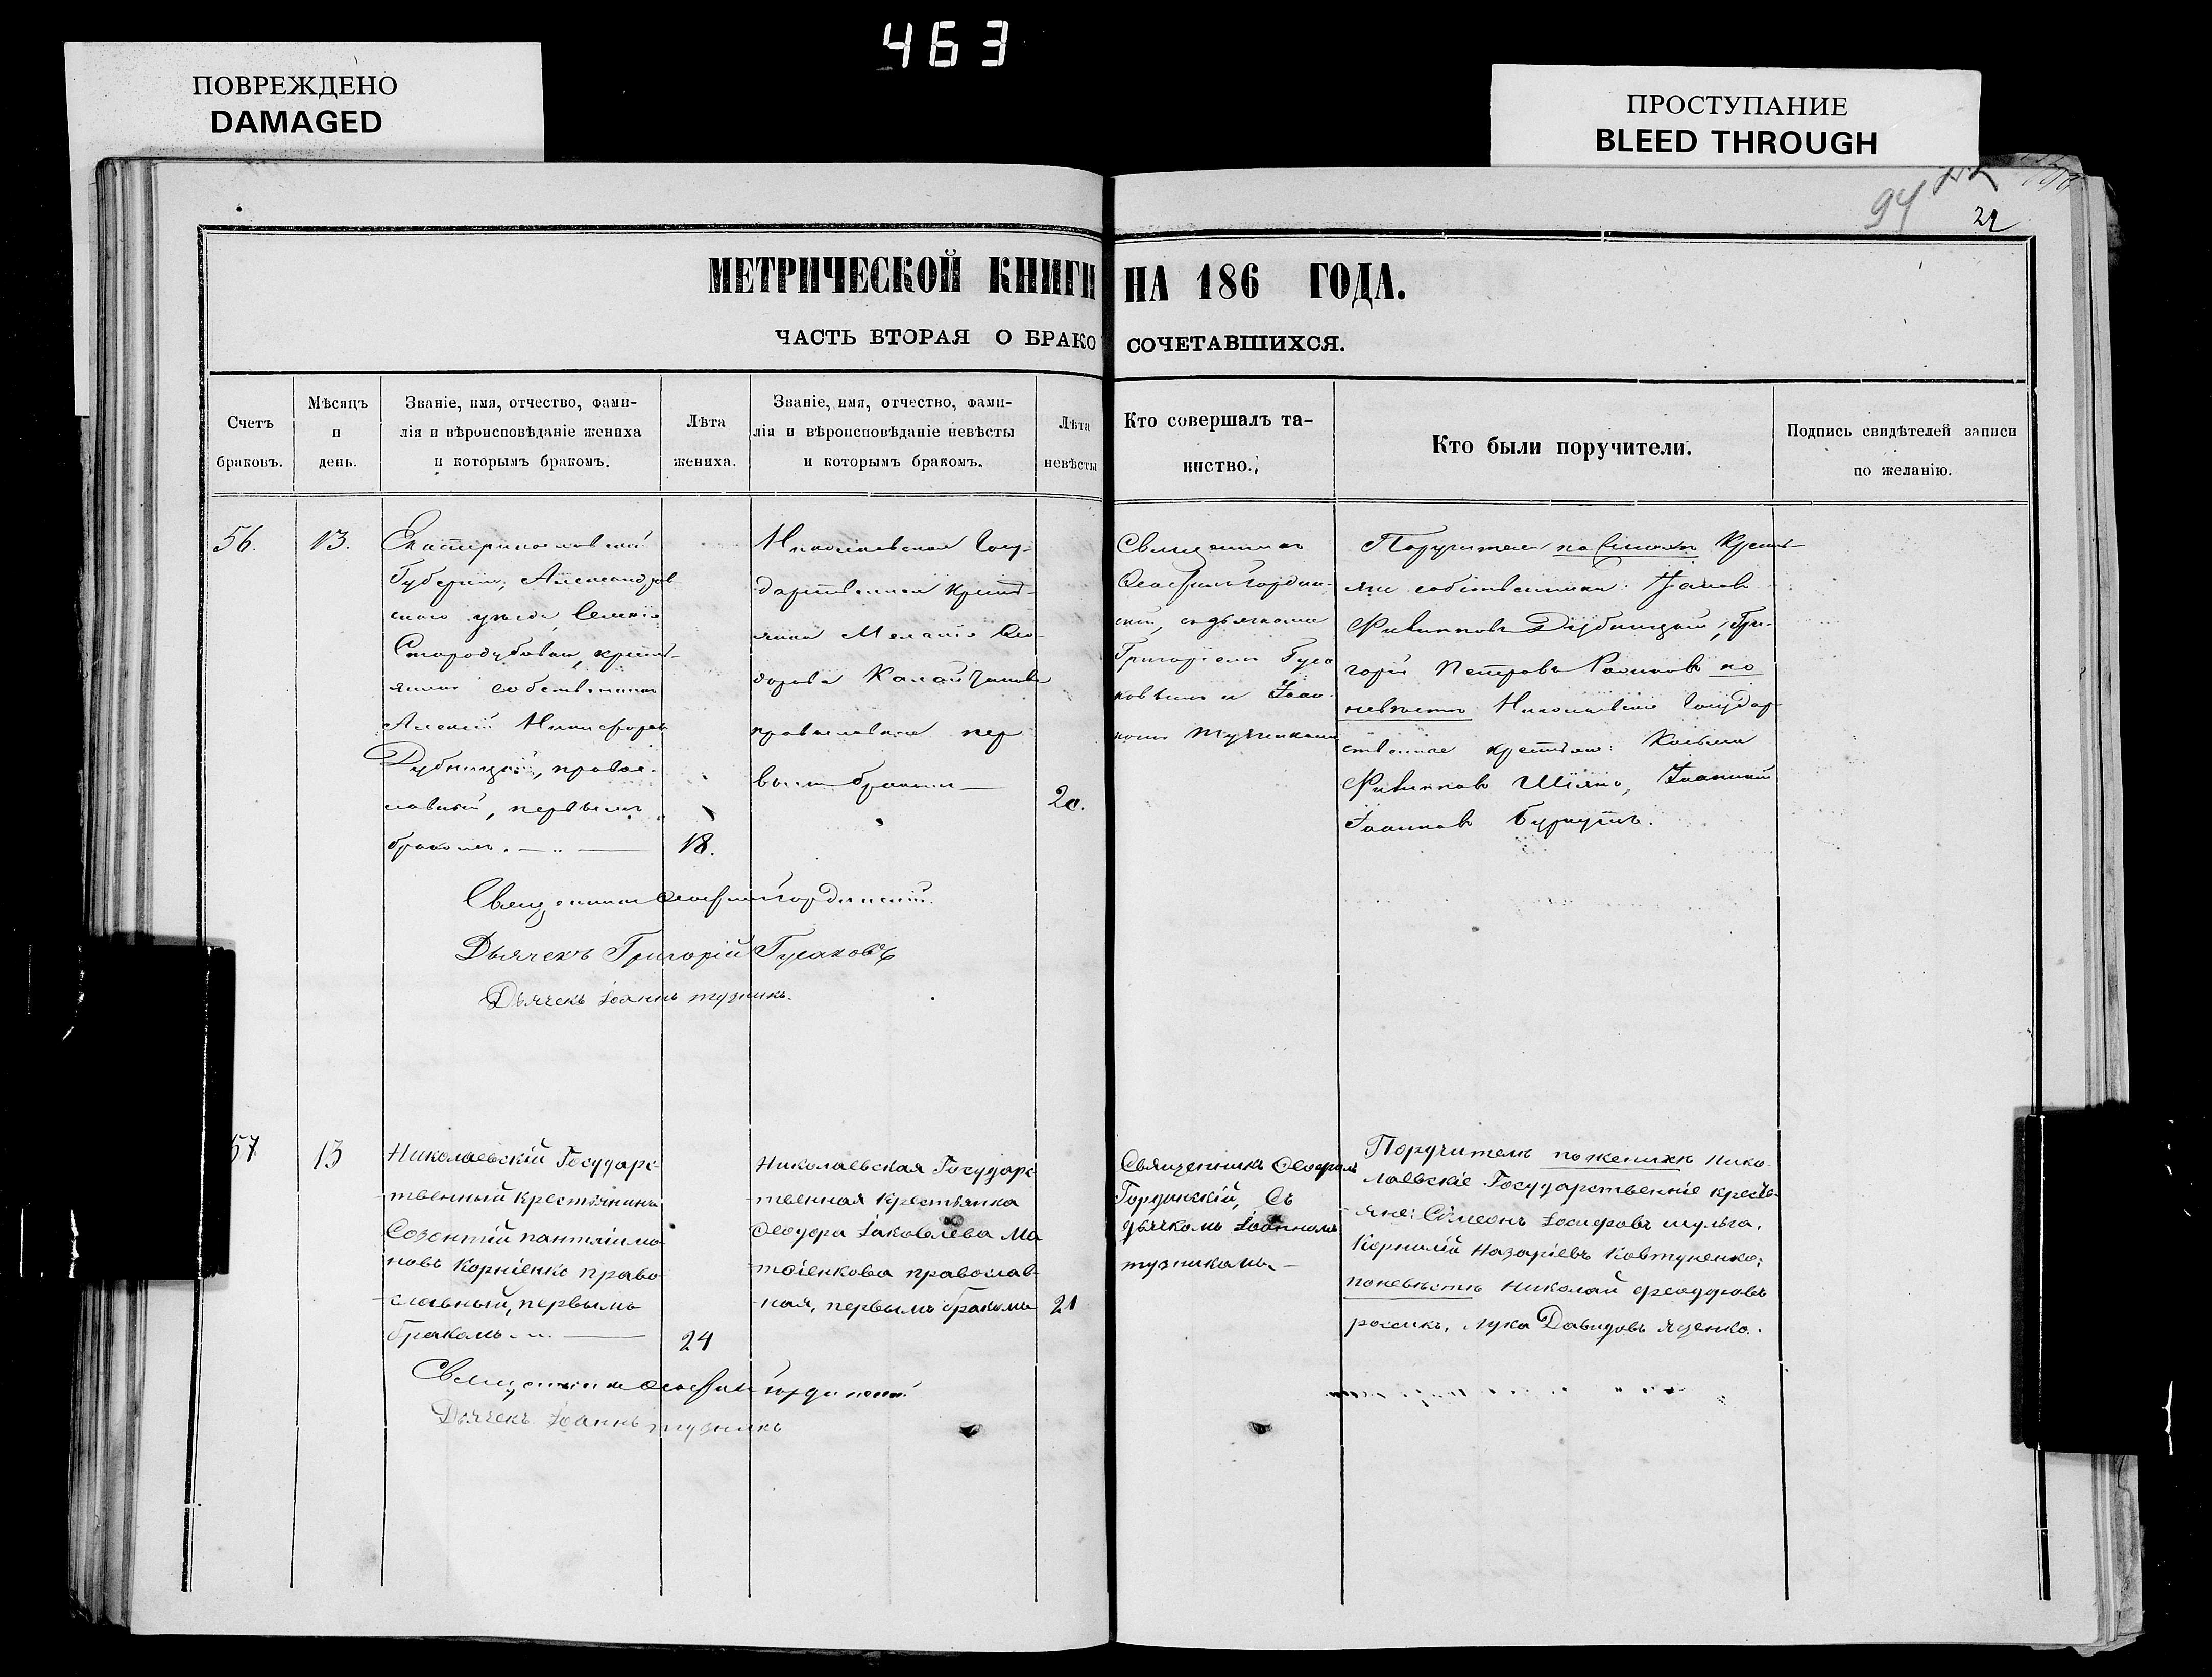 463
ПОВРЕЖДЕНО
DAMAGED
ПРОСТУПАНИЕ
BLEED THROUGH
94
МЕТРИЧЕСКОЙ КНИГИ НА 186 ГОДА.
ЧАСТЬ ВТОРАЯ О БРАКОСОЧЕТАВШИХСЯ.
Счетъ
браковъ.
Мѣсяцъ
и
день.
Званіе, имя, отчество, фами-
лія и вѣроисповѣданіе жениха
и которымъ бракомъ.
Лѣта
жениха.
Званіе, имя, отчество, фами-
лія и вѣроисповѣданіе невѣсты
и которымъ бракомъ.
Лѣта
невѣсты
Кто совершалъ та-
инство.
Кто были поручители.
Подпись свидѣтелей записи
по желанію.
56.
13.
Екатеринославской
Губерніи, Александров
скаго уѣзда
крест-
янинъ собственникъ
Алексій Никифоровъ
Дубницкій, правос-
лавный, первымъ
бракомъ.
18.
Николаевская Госу-
дарственная крест-
янка Меланія Ѳео-
дорова
православная пер
вымъ бракомъ
20.
Священникъ
Ѳеофилъ Гордин-
скій, съ дьячками
Григоріемъ Гуса
ковымъ и Іоан-
номъ Тузникомъ
Поручители Кресть-
яне собственники:
Филиповъ Дубницкій, Гри-
горій Петровъ по
невѣстѣ Николаевскіе Государ
ственные крестьяне: Косьма
Филиповъ Шіянъ, Іоанникій
Іоанновъ
Священникъ Ѳеофилъ Гординскій.
Дьячекъ Григорій Гусаковъ
Дьячекъ Іоаннъ тузникъ.
57
13
Николаевскій Государс-
твенный крестьянинъ
Созонтій пантілимо
новъ Корніенко право
славный, первымъ
бракомъ
24
Николаевская Государс
твенная крестьянка
Ѳеодора Іаковлева Ма
тѳіенкова православ-
ная, первымъ бракомъ
21
Священникъ Ѳеофилъ
Гординскій, Съ
дьячкомъ Іоанномъ
тузникомъ.
Поручители по женихѣ Нико-
лаевскіе Государственніе кресть-
яне: Сѵмеонъ Іосифовъ шульга,
Корнилій Назаріевъ Ковтуненко;
по невѣстѣ Николай феодоровъ
россикъ, лука Давидовъ яценко.
Священникъ Ѳеофилъ Гординскій
Дьячекъ Іоаннъ тузникъ